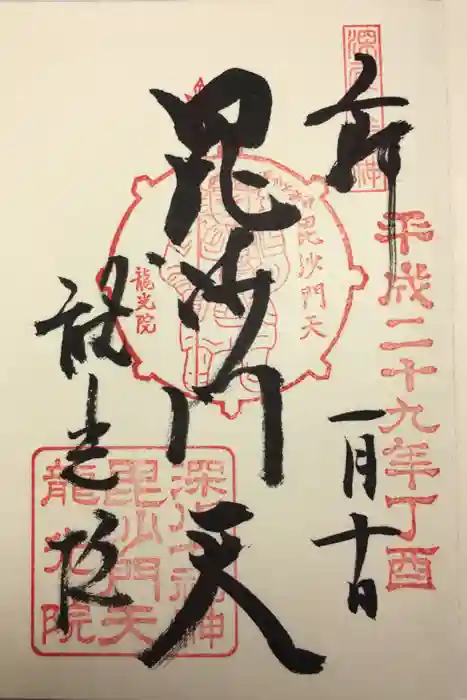 奉拝
平成二十九年丁酉
一月十日
毘沙門天
龍光院
毘沙門天
龍光院
深川七福神
毘沙門天
龍光院